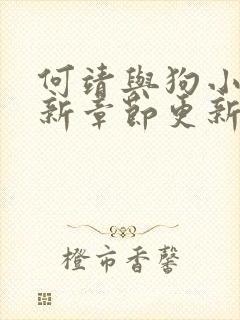 何靖與狗小
新章節更新
橙市香馨